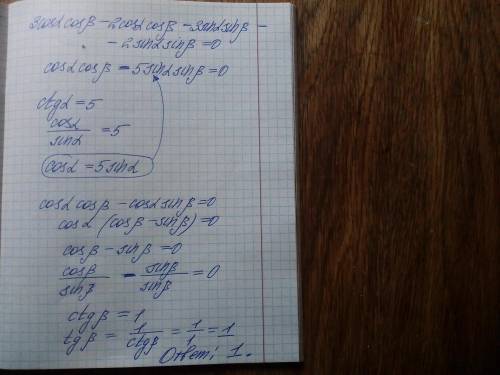 3cosα cosβ - 2cosα cosβ - 3sinα sinβ -
- 2sinα sinβ = 0
cosα cosβ - 5sinα sinβ = 0
ctgα = 5
cosα/sinα = 5
cosα = 5sinα
cosα cosβ - cosα sinβ = 0
cosα (cosβ - sinβ) = 0
cosβ - sinβ = 0
cosβ/sinβ - sinβ/sinβ = 0
ctgβ = 1
tgβ = 1/ctgβ = 1/1 = 1
Ответ: 1.